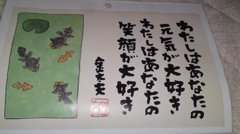 わたしはあなたの
元気が大好き
わたしはあなたの
笑顔が大好き